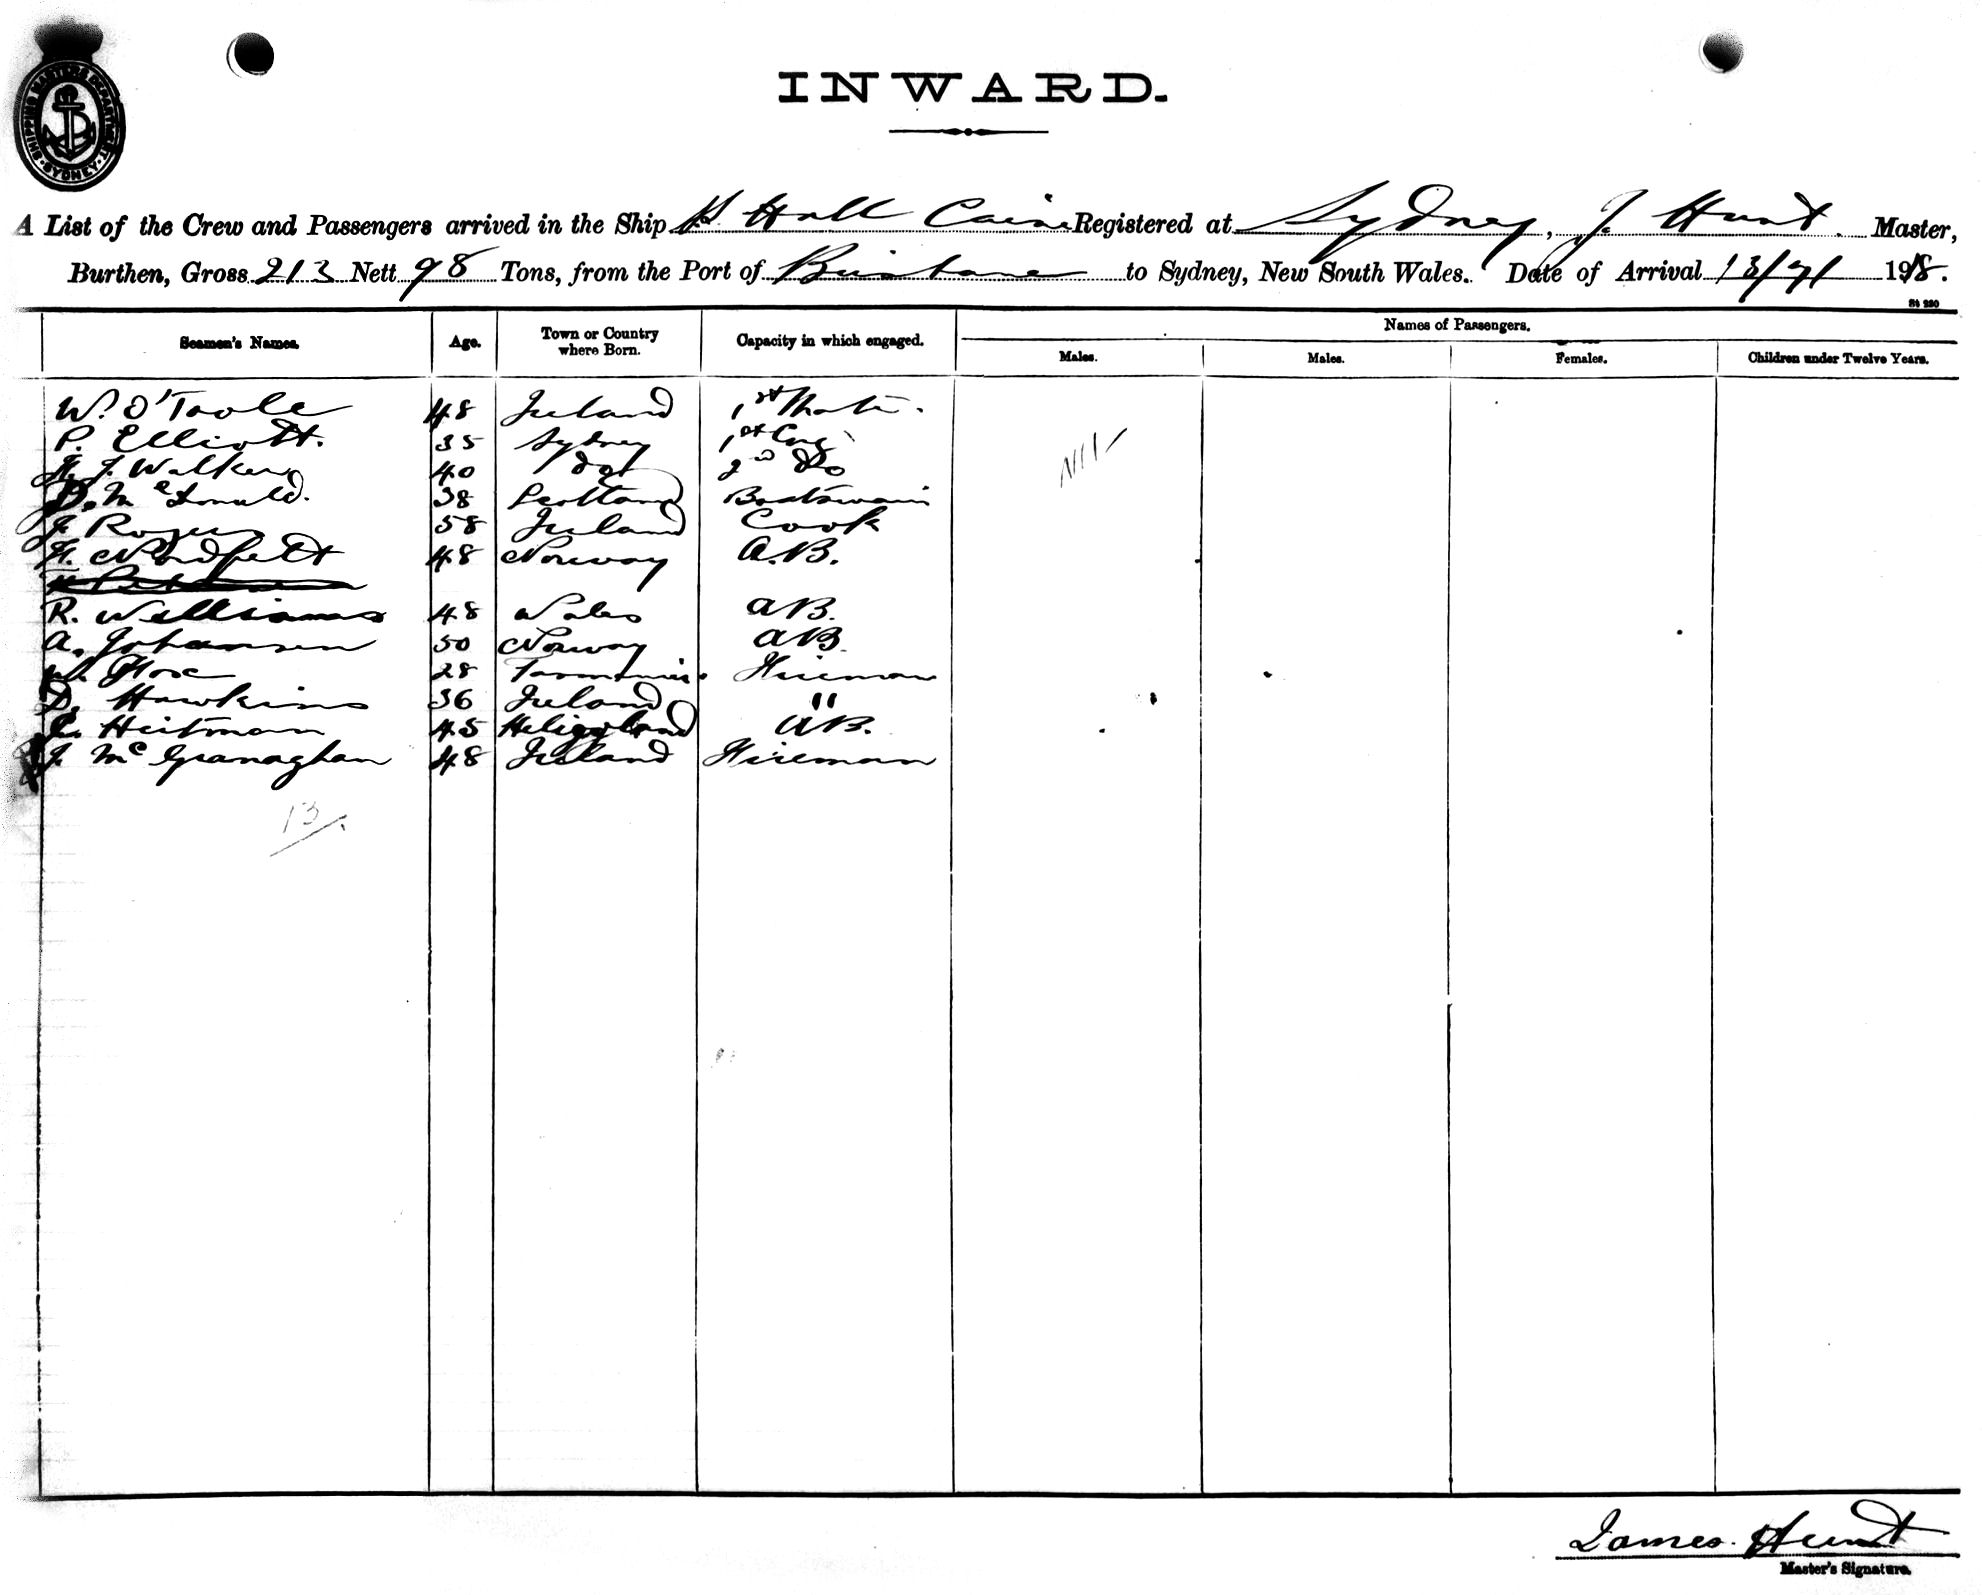 SHIPPING MASTERS DEPARTMENT · SYDNEY ·
INWARD.
A List of the Crew and Passengers arrived in the Ship Hall Caine Registered at Sydney, J. Hunt. Master,
Burthen, Gross 213 Nett 98 Tons, from the Port of Brisbane to Sydney, New South Wales. Date of Arrival 13/7/ 1918.
St 220
Seamen's Names. Age. Town or Country where Born. Capacity in which engaged. Names of Passengers.
Males. Males. Females. Children under Twelve Years.
W. O'Toole 48 Ireland 1st Mate.
P. Elliott. 35 Sydney 1st Eng
J. Walker 40 do 2nd do Nil
D. McDonald. 38 Scotland Boatswain
J. Rogers 58 Ireland Cook
Nordfeldt 48 Norway A.B.
R. Williams 48 Wales AB.
A. Johansen 50 Norway AB.
Fox 28 Tasmania. Fireman
D. Hawkins 36 Ireland "
Heitman 45 Heligoland AB.
J. McGranaghan 48 Ireland Fireman
13
James Hunt
Master's Signature.